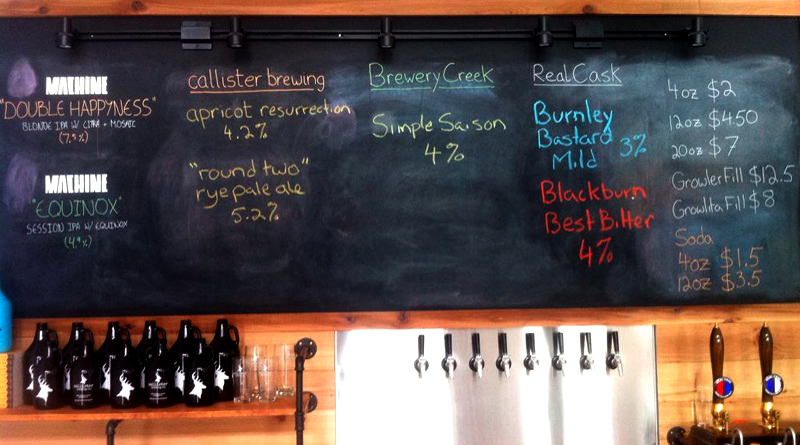 MACHINE
"DOUBLE HAPPYNESS"
BLONDE IPA W/ CITRA + MOSAIC
(7.5%)
MACHINE
"EQUINOX"
SESSION IPA W/ EQUINOX
(4.9%)
callister brewing
apricot resurrection
4.2%
"round two"
rye pale ale
5.2%
Brewery Creek
Simple Saison
4%
Real Cask
Burnley
Bastard
Mild 3%
Blackburn
Best Bitter
4%
4oz $2
12oz $450
20oz $7
Growler Fill $12.5
Growlita Fill $8
Soda
4oz $1.5
12oz $3.5